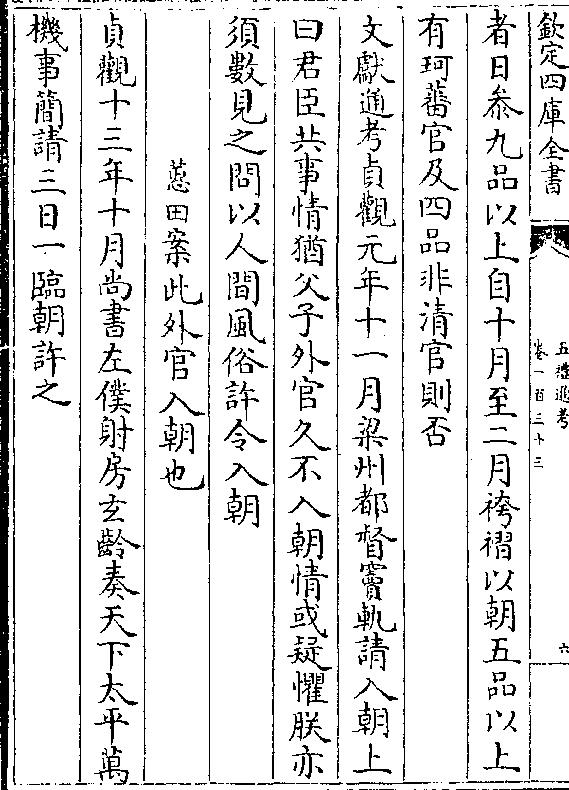 欽定四庫全書
五禮通考
卷一百三十三
六
者日參九品以上自十月至二月袴褶以朝五品以上
有珂蕃官及四品非清官則否
文獻通考貞觀元年十一月梁州都督竇軌請入朝上
曰君臣共事情猶父子外官久不入朝情或疑懼朕亦
須數見之問以人間風俗許令入朝
蕙田案此外官入朝也
貞觀十三年十月尚書左僕射房玄齡奏天下太平萬
機事簡請三日一臨朝許之